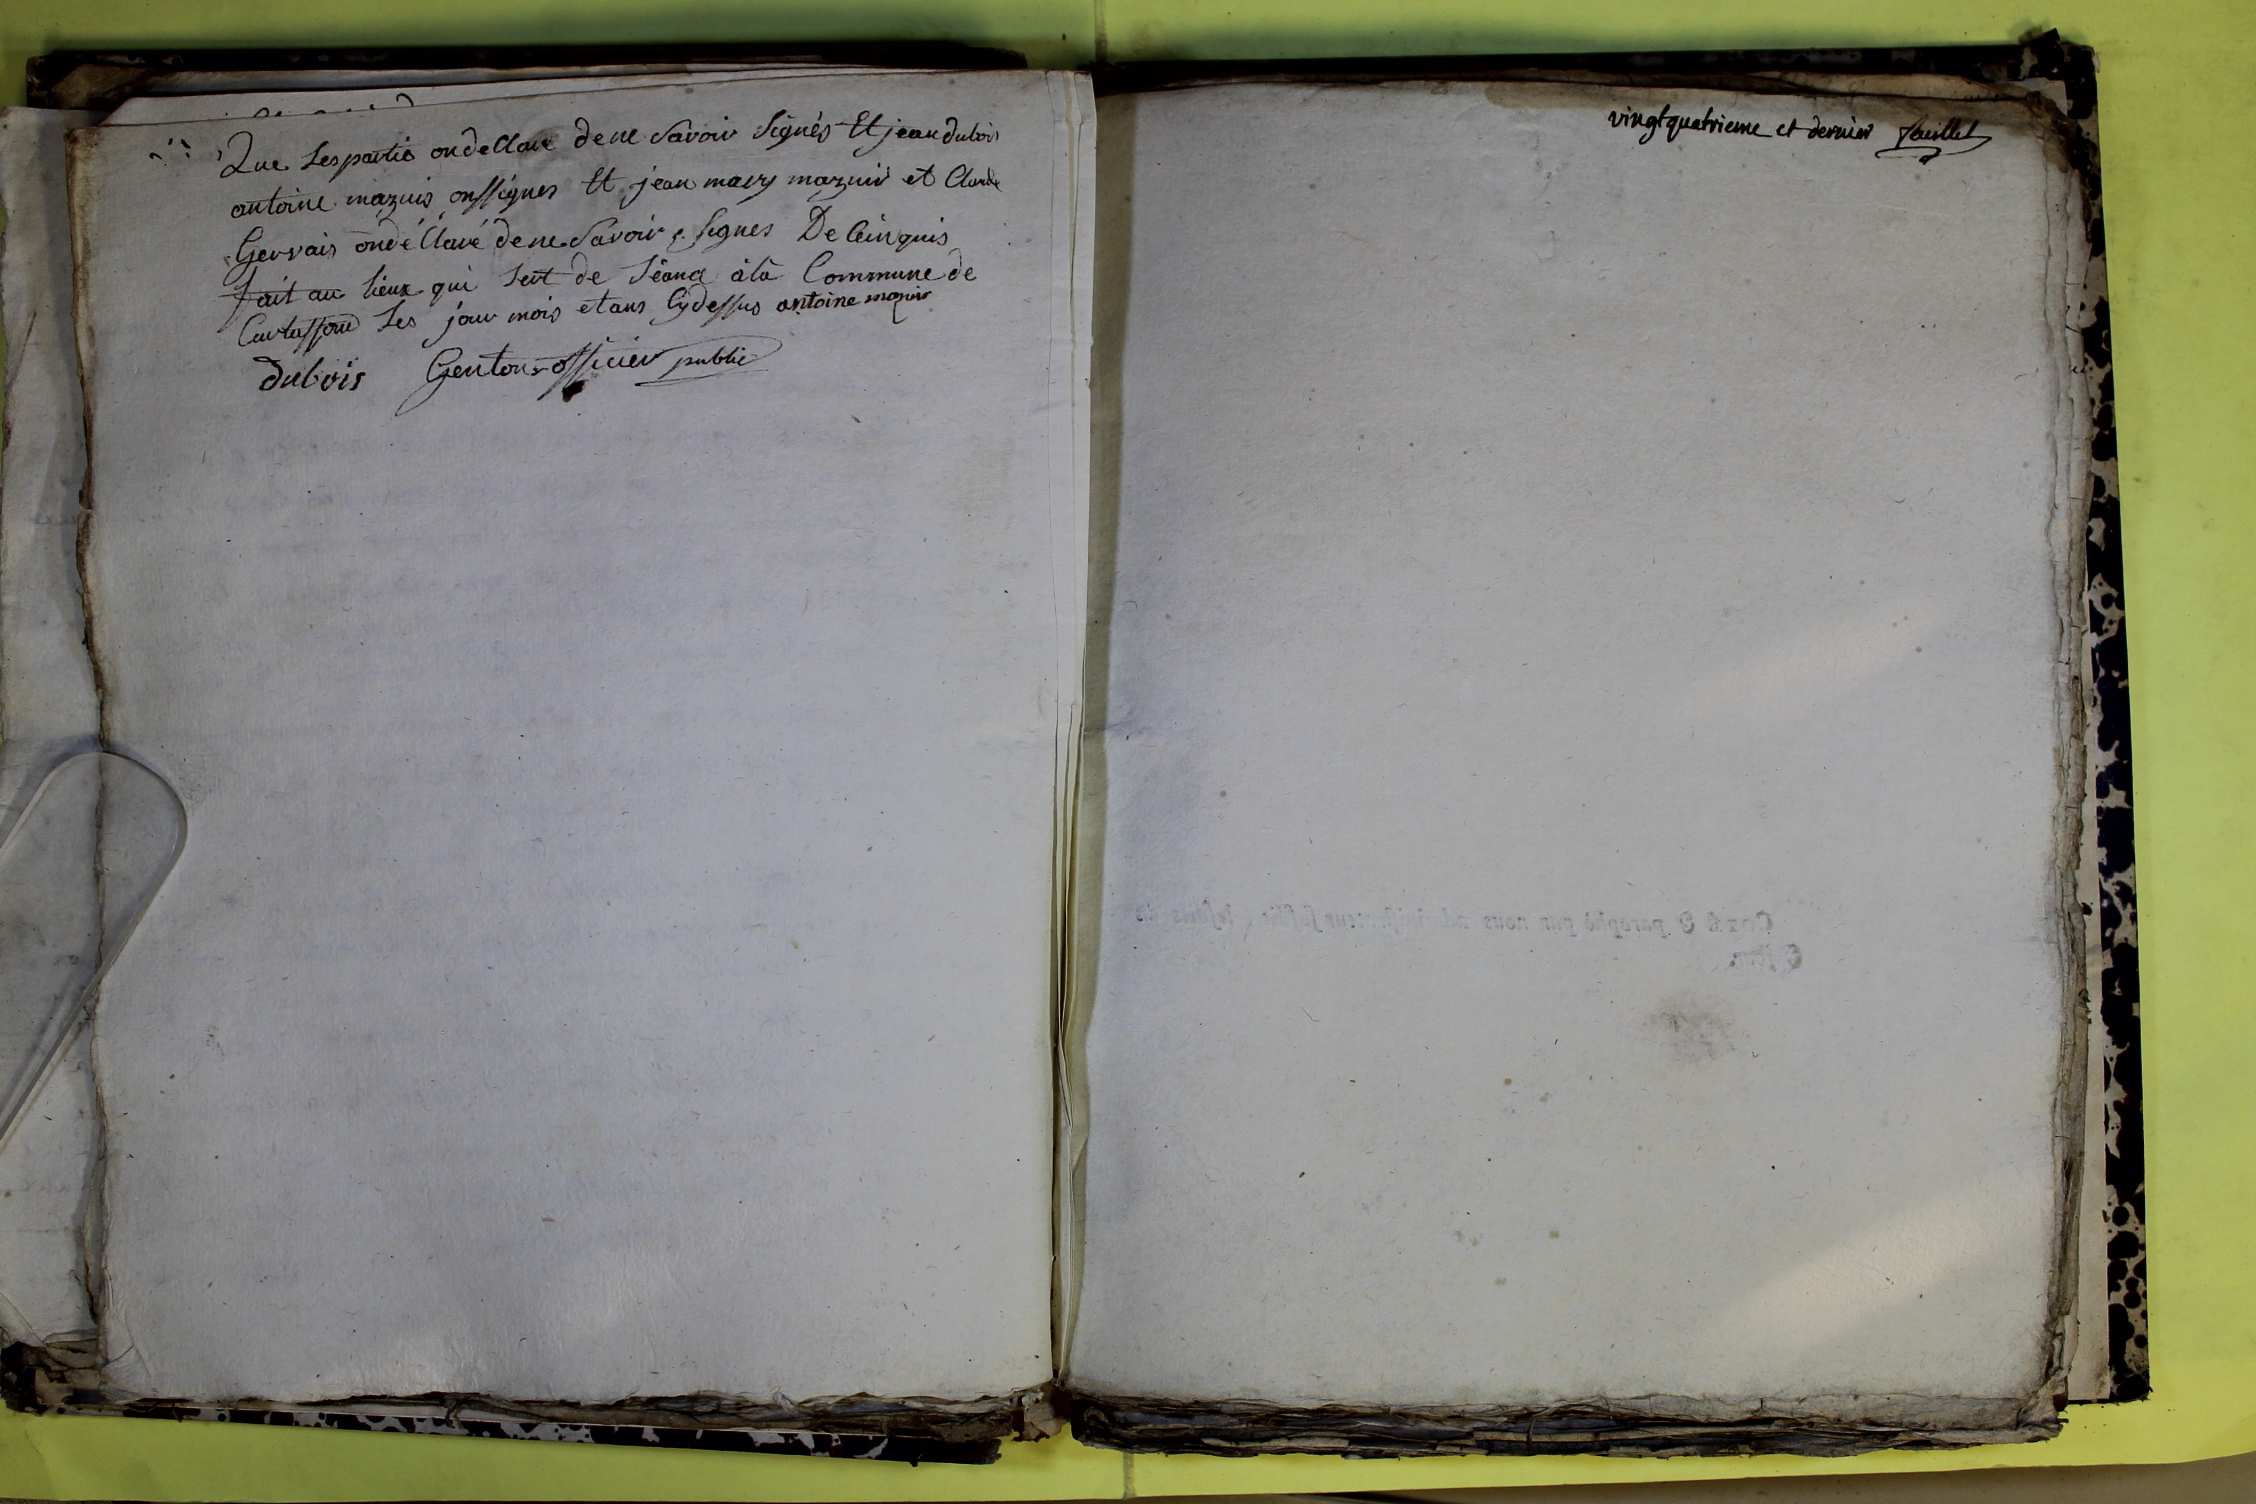 Que Les partie on declaré de ne Savoir Signés Et jean dubois
antoine mazuis onssignes Et jean mary mazuir et Claude
Gervais on déclaré de ne Savoir Signes De Ceinquis
fait au lieux qui sert de Séance à la Commune de
Les jour mois et ans Cydessus antoine mazuir
dubois Genton officier public
vingt quatrieme et dernier feuillet